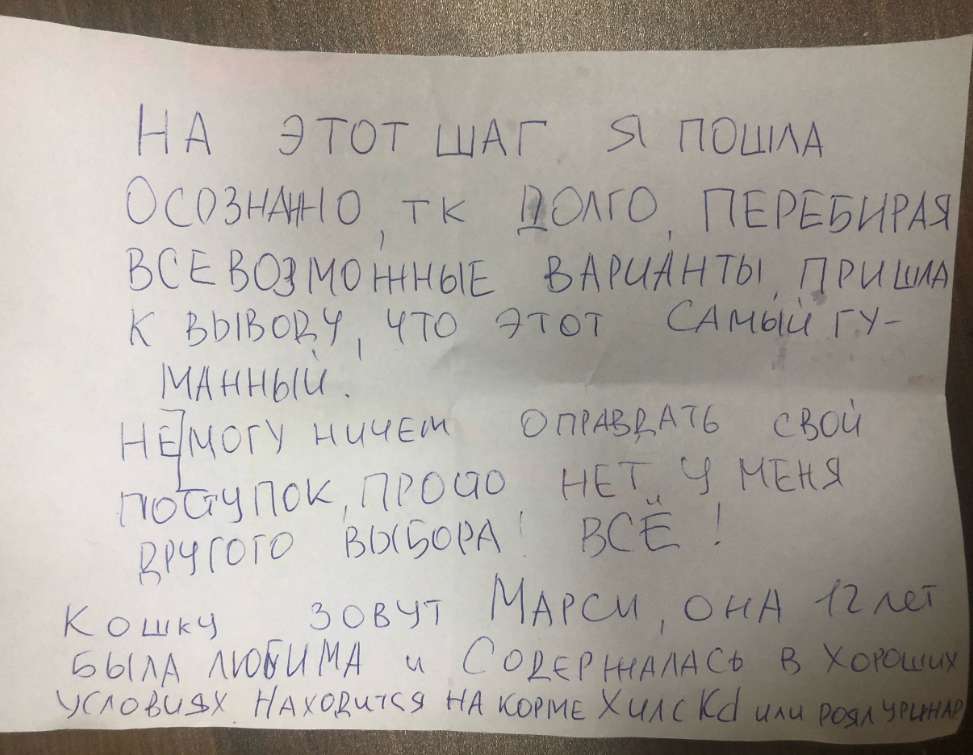 НА ЭТОТ ШАГ Я ПОШЛА
ОСОЗНАННО, ТК ДОЛГО, ПЕРЕБИРАЯ
ВСЕВОЗМОЖНЫЕ ВАРИАНТЫ, ПРИШЛА
К ВЫВОДУ, ЧТО ЭТОТ САМЫЙ ГУ-
МАННЫЙ.
НЕ МОГУ НИЧЕМ ОПРАВДАТЬ СВОЙ
ПОСТУПОК, ПРОСТО НЕТ У МЕНЯ
ДРУГОГО ВЫБОРА! ВСЁ!
КОШКУ ЗОВУТ МАРСИ, ОНА 12 лет
БЫЛА ЛЮБИМА и СОДЕРЖАЛАСЬ В ХОРОШИХ
УСЛОВИЯХ. НАХОДИТСЯ НА КОРМЕ ХИЛС Kd или РОЯЛ УРИНАР